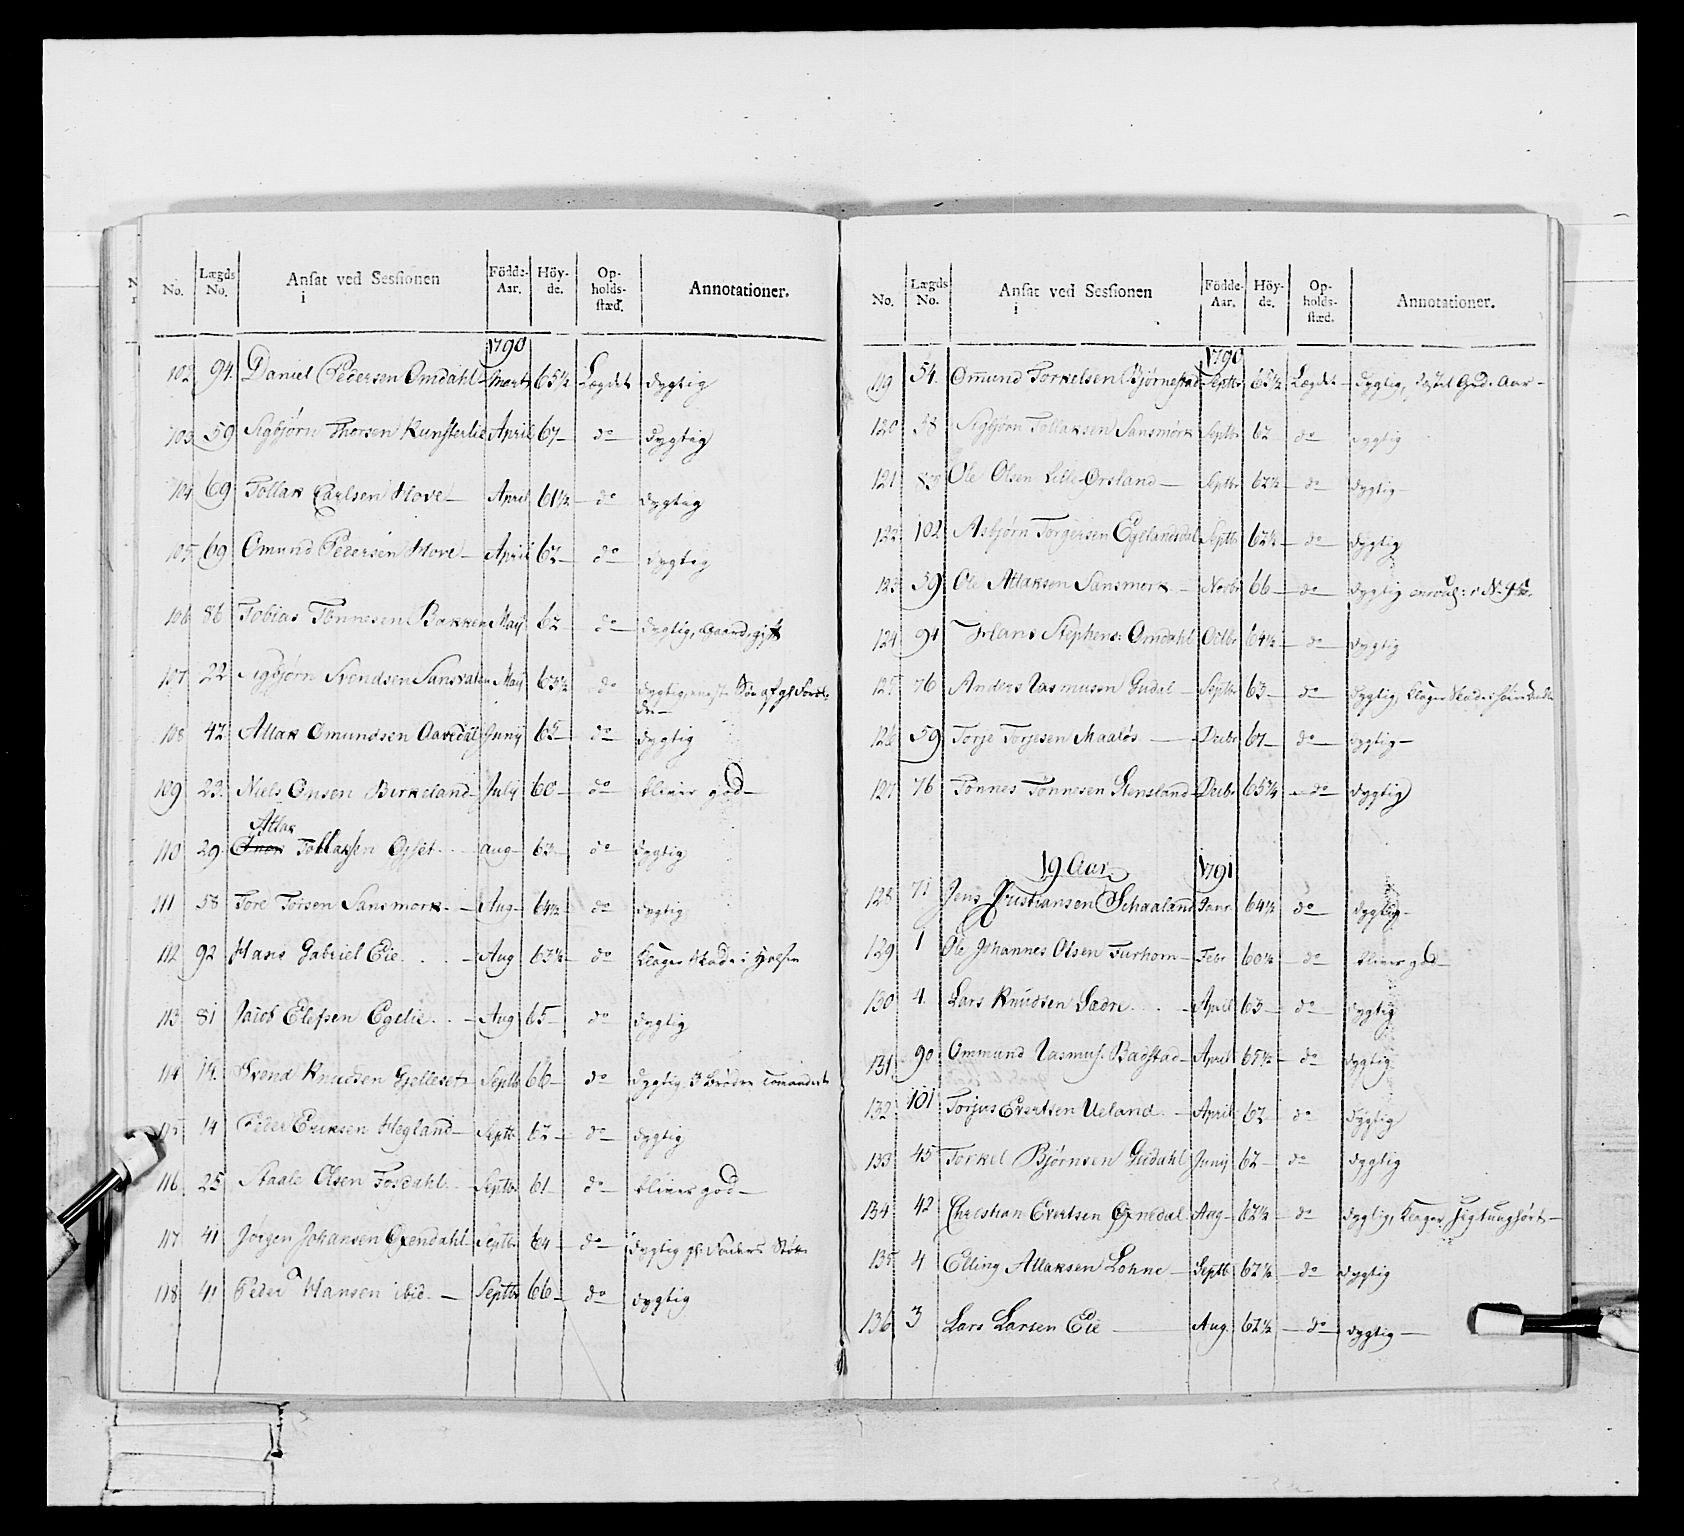 No. Lægds No. Ansat ved Sessionen i Födde-Aar. Höy-de. Op-holds-stæd. Annotationer.
1790
102 94 Daniel Pedersen Omdahl Marts 65½ Lægdet dygtig
103 59 Sigbjørn Thorsen Kunsterlie April 67 do dygtig
104 69 Tollak Carlsen Hove April 61½ do dygtig
105 69 Omund Pedersen Hove April 62 do dygtig
106 86 Tobias Tønnesen Bakken Maij 62 do dygtig, Gaard, gift
107 22 Sigbjørn Svendsen Sansvatn Maij 63½ do dygtig, eneste Søn af gl. Forældre
108 42 Atlak Omundsen Aavedal Junij 65 do dygtig
109 23 Niels Onsen Birkeland July 60 do bliver god
Atlak
110 29 Tollaksen Osset Aug 63 do dygtig
111 58 Tore Torsen Sansmork Aug 64½ do dygtig
112 92 Hans Gabriel Eie Aug 63½ do klager Skade i
113 81 Jacob Elefsen Egelie Aug 65 do dygtig
114 14 Svend Knudsen Gjelleset Septbr 66 do dygtig. 3 Brødre
115 14 Peder Eriksen Hegland Septbr 62 do dygtig
116 25 Staale Olsen Fosdahl Septbr 61 do bliver god
117 41 Jørgen Johansen Oxendahl Septbr 64 do dygtig gl. Faders Støtte
118 41 Peder Hansen ibid. Septbr 66 do dygtig
No. Lægds No. Ansat ved Sessionen i Födde-Aar. Höy-de. Op-holds-stæd. Annotationer.
1790
119 54 Omund Torkelsen Bjørnestad Septbr 65½ Lægdet dygtig,
120 58 Sigbjørn Tollaksen Sansmork Septbr 62 do dygtig
121 83 Ole Olsen Lille Ørsland Septbr 62½ do dygtig
122 102 Asbjørn Torgersen Egelandsdal Septbr 62½ do dygtig
123 59 Ole Atlaksen Sansmork Novbr 66 do dygtig
124 91 Hans Stephens: Omdahl Octbr 64½ do dygtig
125 76 Anders Rasmusen Gudel Septbr 63 do dygtig, klager Skade
126 59 Torje Torjesen Maaløs Decbr 67 do dygtig
127 76 Tønnes Tønnesen Stensland Decbr 65¼ do dygtig
19 Aar 1791
128 71 Jens Christiansen Schaaland Janr. 64½ do dygtig
129 1 Ole Johannes Olsen Furhom Febr 60½ do bliver god
130 4 Lars Knudsen Ladre April 63 do dygtig
131 90 Ommund Rasmus: Badstad April 65½ do dygtig
132 101 Torjus Evertsen Ueland April 62 do dygtig
133 45 Torkel Bjørnsen Gudahl Junij 62 do dygtig
134 42 Christian Evertsen Oxnedal Aug 62½ do dygtig, klager sig tunghørt
135 4 Elling Atlaksen Lohne Septbr 62½ do dygtig
136 3 Lars Larsen Eie Aug. 62½ do dygtig